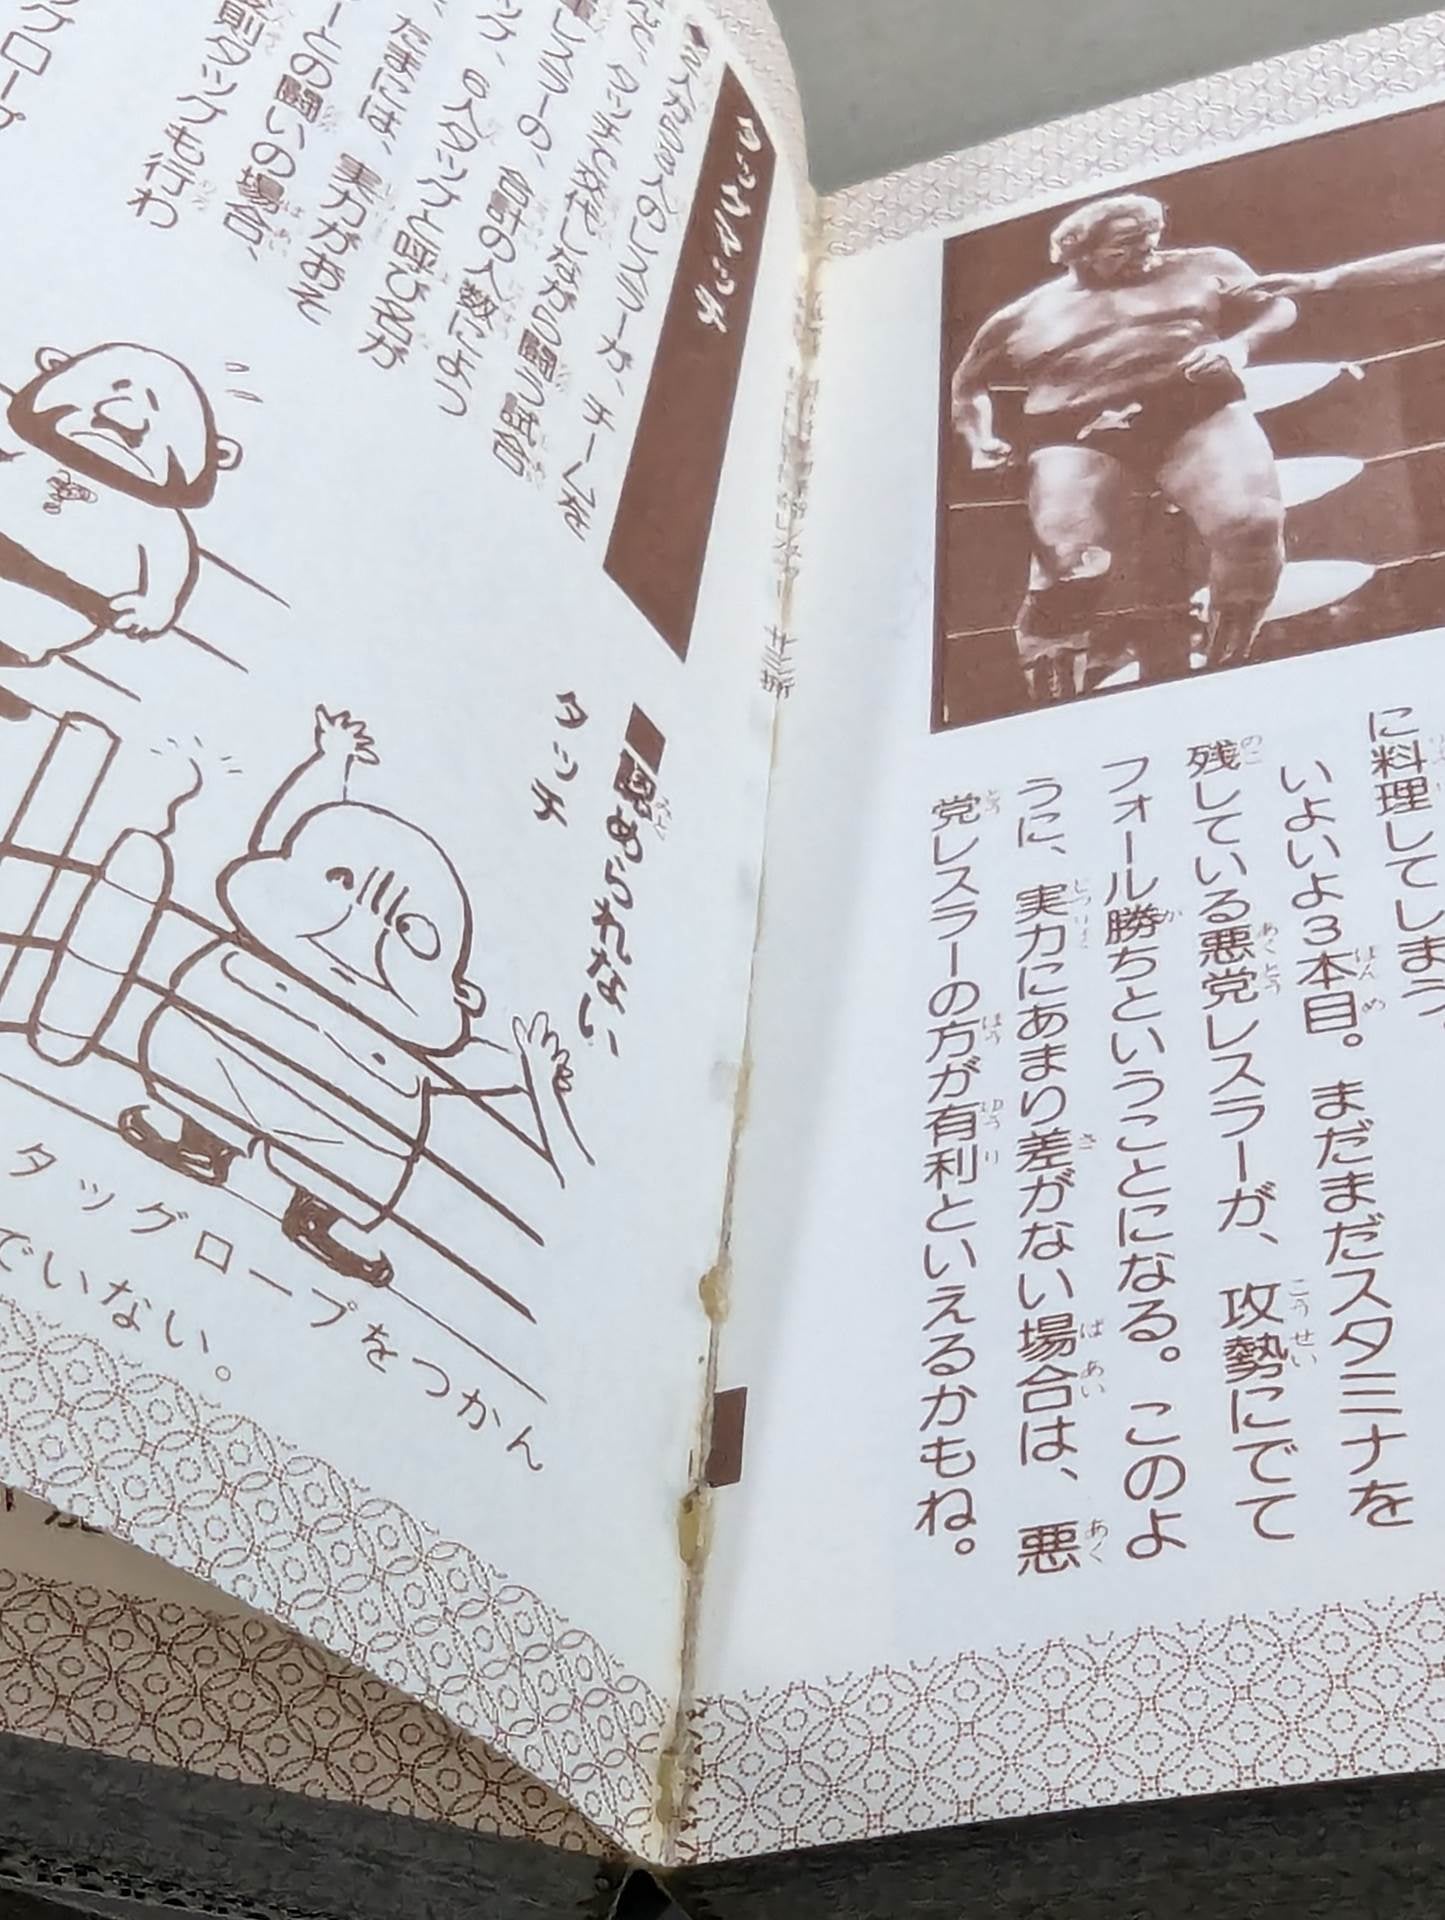 に料理してしまう。
いよいよ3本目。まだまだスタミナを
残している悪党レスラーが、攻勢にでて
フォール勝ちということになる。このよ
うに、実力にあまり差がない場合は、悪
党レスラーの方が有利といえるかもね。
タッグマッチ
レスラーが、チームを
タッチで交代しながら闘う試合。
レスラーの、合計の人数によっ
8人タッグと呼び名が
たまには、実力がおそ
との闘いの場合、
則タッグも行わ
グロープ
認められない
タッチ
タッグロープをつかん
でいない。